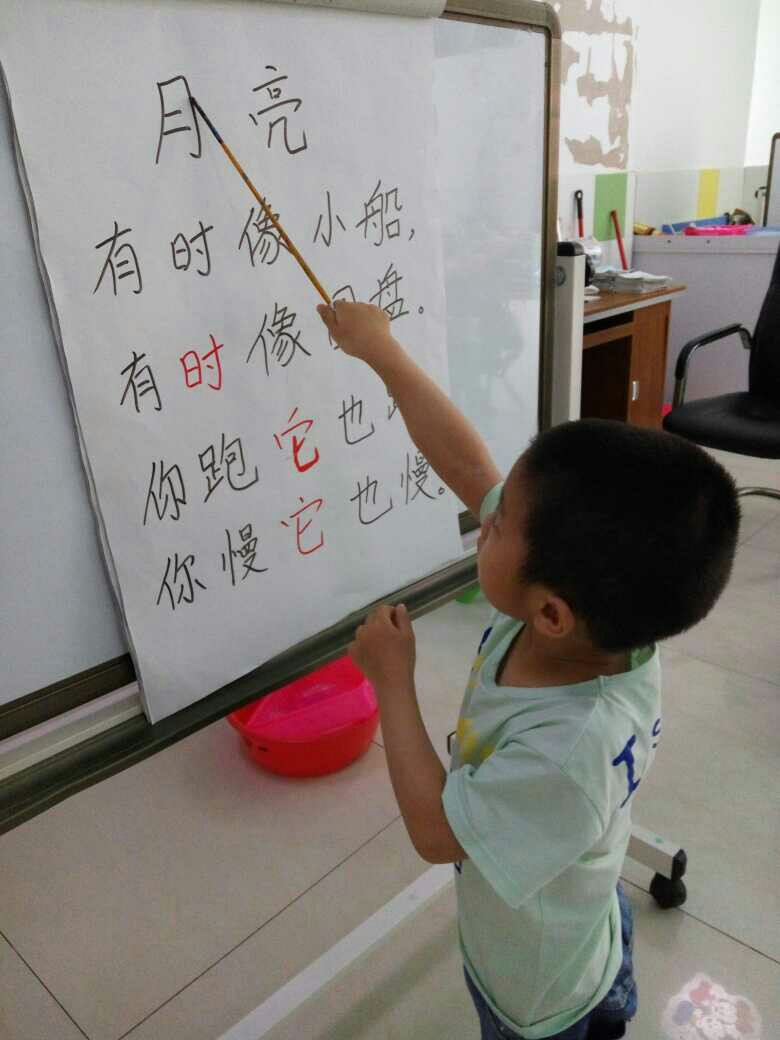 月亮
有时像小船,
有时像 盘。
你跑它也
你慢它也慢。
I